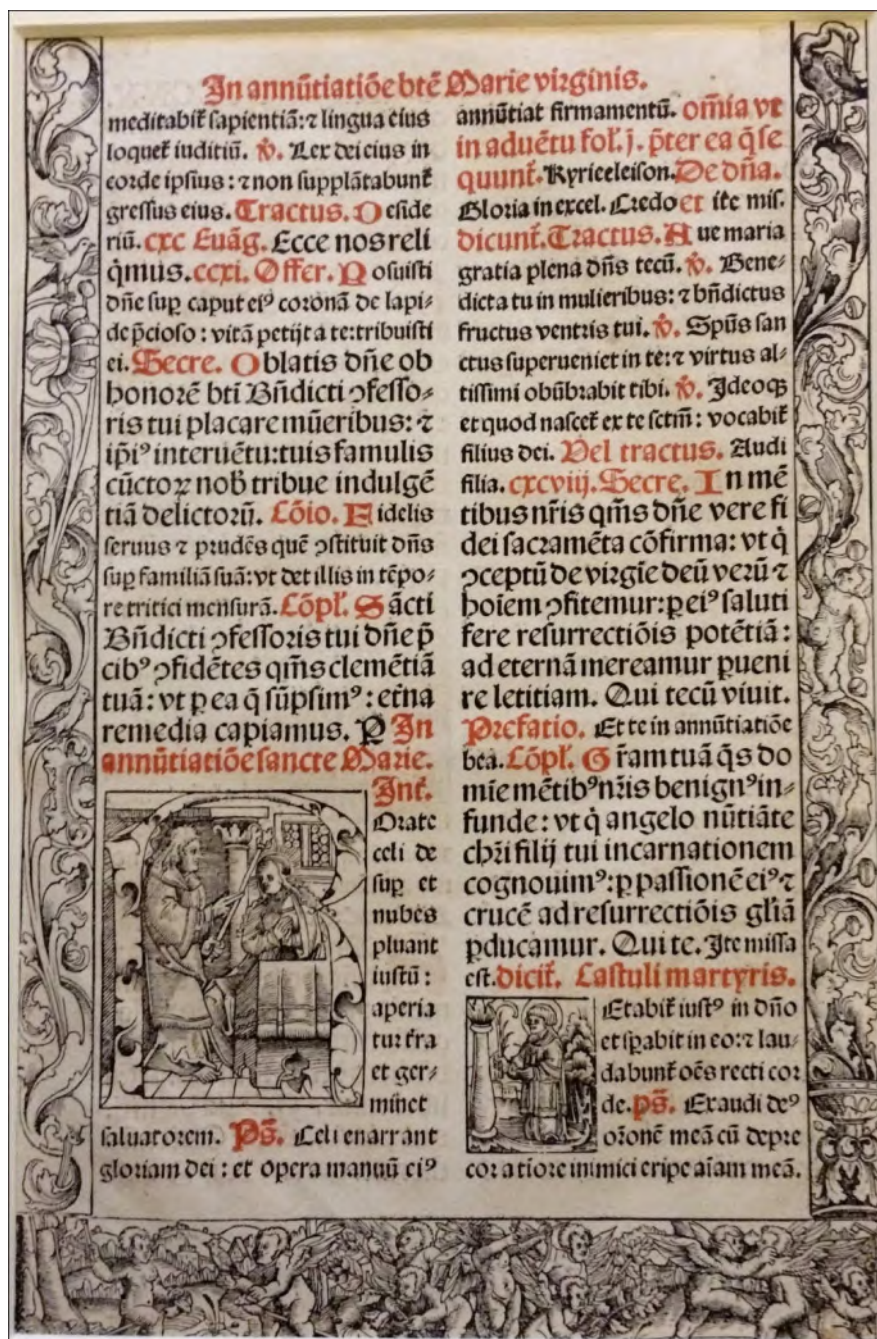 In annūtiatiōe btē Marie virginis.
meditabit̃ sapientiā: ⁊ lingua eius
loquet̃ iuditiū. ℣. Lex dei eius in
corde ipsius: ⁊ non supplātabunt̃
gressus eius. Tractus. Deside
riū. cxc Euāg. Ecce nos reli
q̄mus. ccxi. Offer. Posuisti
dñe suꝑ caput eiꝰ coronā de lapi⸗
de p̄cioso: vitā petijt a te: tribuisti
ei. Secre. Oblatis dñe ob
honorē bti Bñdicti ↄfesso⸗
ris tui placare mūeribus: ⁊
ip̄iꝰ interuētu: tuis famulis
cūctoꝝ nob̄ tribue indulgē
tiā delictorū. Cōio. Fidelis
seruus ⁊ prudēs quē ↄstituit dñs
suꝑ familiā suā: vt det illis in tēpo⸗
re tritici mensurā. Cōpl̄. Sācti
Bñdicti ↄfessoris tui dñe p̄
cibꝰ ↄfidētes qm̄s clemētiā
tuā: vt ꝑ ea q̄ sūpsimꝰ: et̄na
remedia capiamus. P In
annūtiatiōe sancte Marie.
Int̄.
Rorate
celi de
suꝑ et
nubes
pluant
iustū:
aperia
tur t̄ra
et ger⸗
minet
saluatorem. Ps̄. Celi enarrant
gloriam dei: et opera manuū eiꝰ
annūtiat firmamentū. om̄ia vt
in aduētu fol. j. p̄ter ea q̄ se
quunt̃. Kyrieeleison. De dña.
Gloria in excel. Credo et ite mis.
dicunt̃. Tractus. Aue maria
gratia plena dñs tecū. ℣. Bene⸗
dicta tu in mulieribus: ⁊ bñdictus
fructus ventris tui. ℣. Spūs san
ctus superueniet in te: ⁊ virtus al⸗
tissimi obūbrabit tibi. ℣. Ideoqꝫ
et quod nascet̃ ex te sctm̄: vocabit̃
filius dei. Vel tractus. Audi
filia. cxcviij. Secre. In mē
tibus nr̄is qm̄s dñe vere fi
dei sacramēta cōfirma: vt q̇
ↄceptū de virgīe deū verū ⁊
hoīem ↄfitemur: ꝑ eiꝰ saluti
fere resurrectiōis potētiā:
ad eternā mereamur ꝑueni
re letitiam. Qui tecū viuit.
Prefatio. Et te in annūtiatiōe
bea. Cōpl̄. Gr̄am tuā q̄s do
mīe mētibꝰ nr̄is benignꝰ in⸗
funde: vt q̇ angelo nūtiāte
chr̄i filij tui incarnationem
cognouimꝰ: ꝑ passionē eiꝰ ⁊
crucē ad resurrectiōis gl̄iā
ꝑducamur. Qui te. Ite missa
est. dicit̃. Castuli martyris.
Letabit̃ iustꝰ in dño
et sꝑabit in eo: ⁊ lau⸗
dabunt̃ oēs recti cor
de. ps̄. Exaudi deꝰ
orōnē meā cū depre
cor a tiore inimici eripe aīam meā.